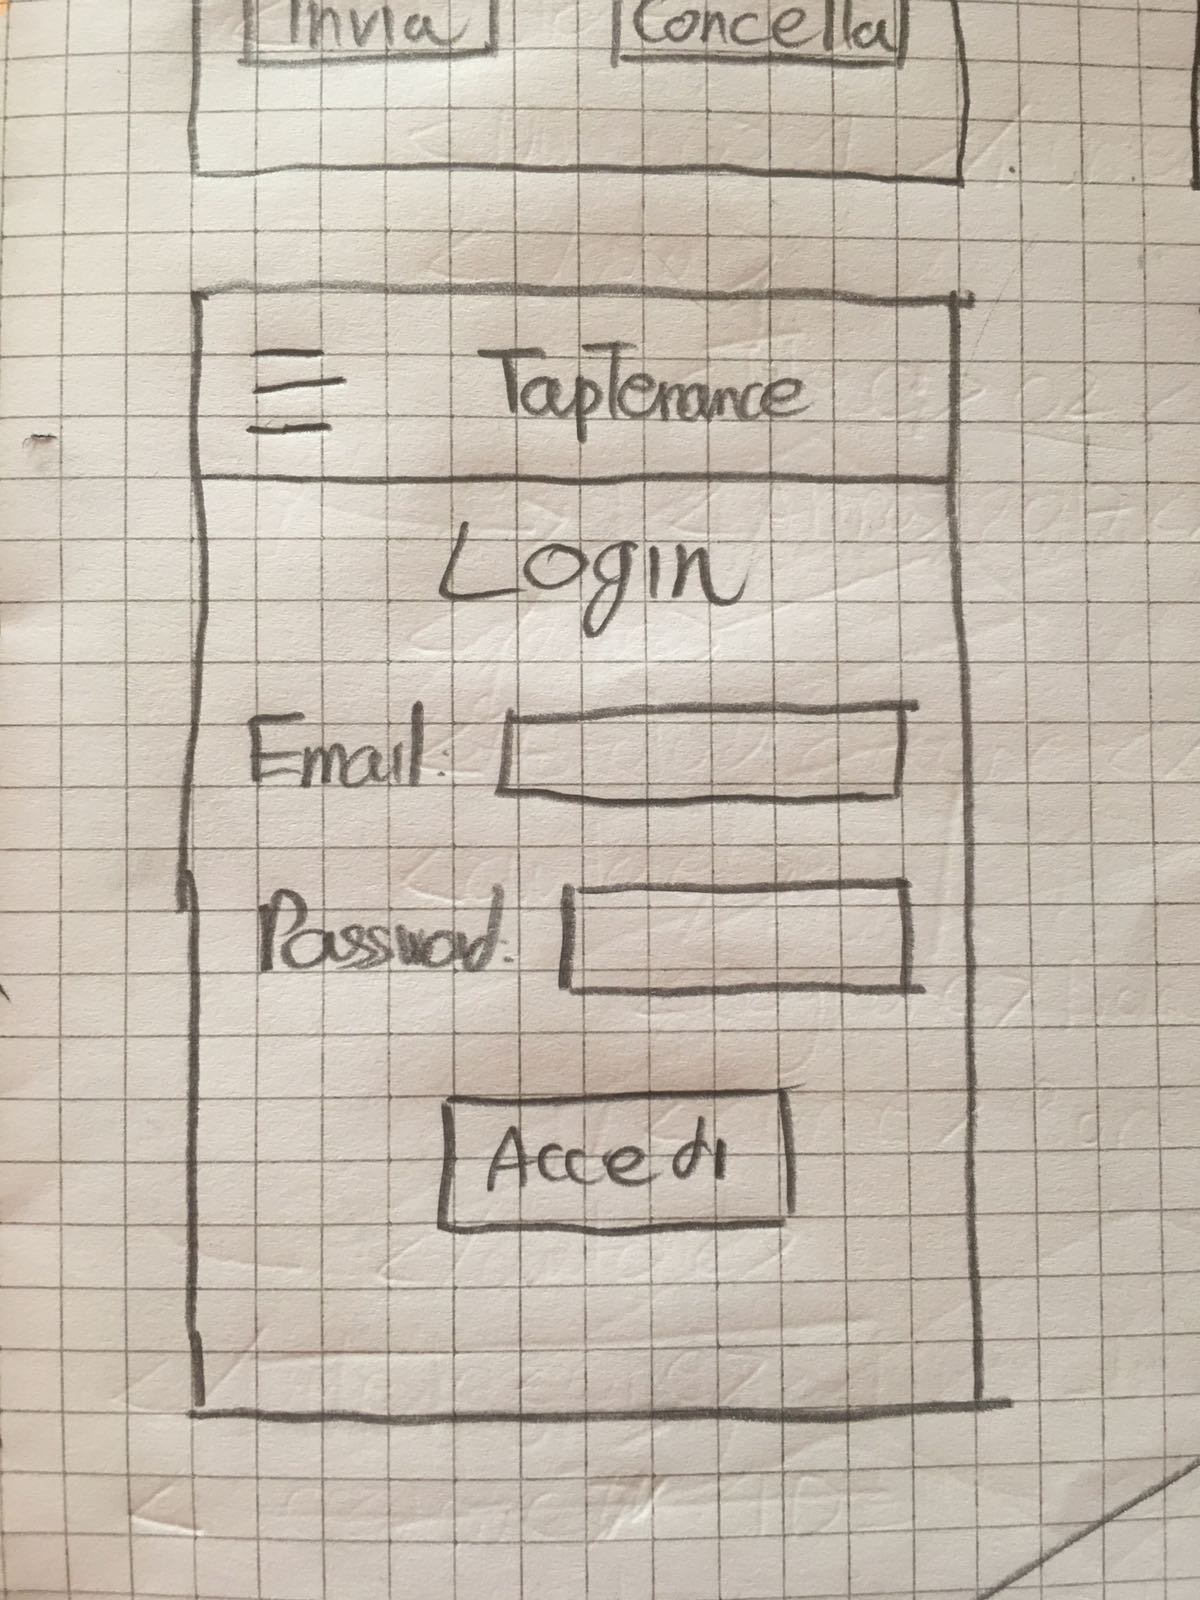 Invia Concella
TapTenance
Login
Email:
Password:
Accedi